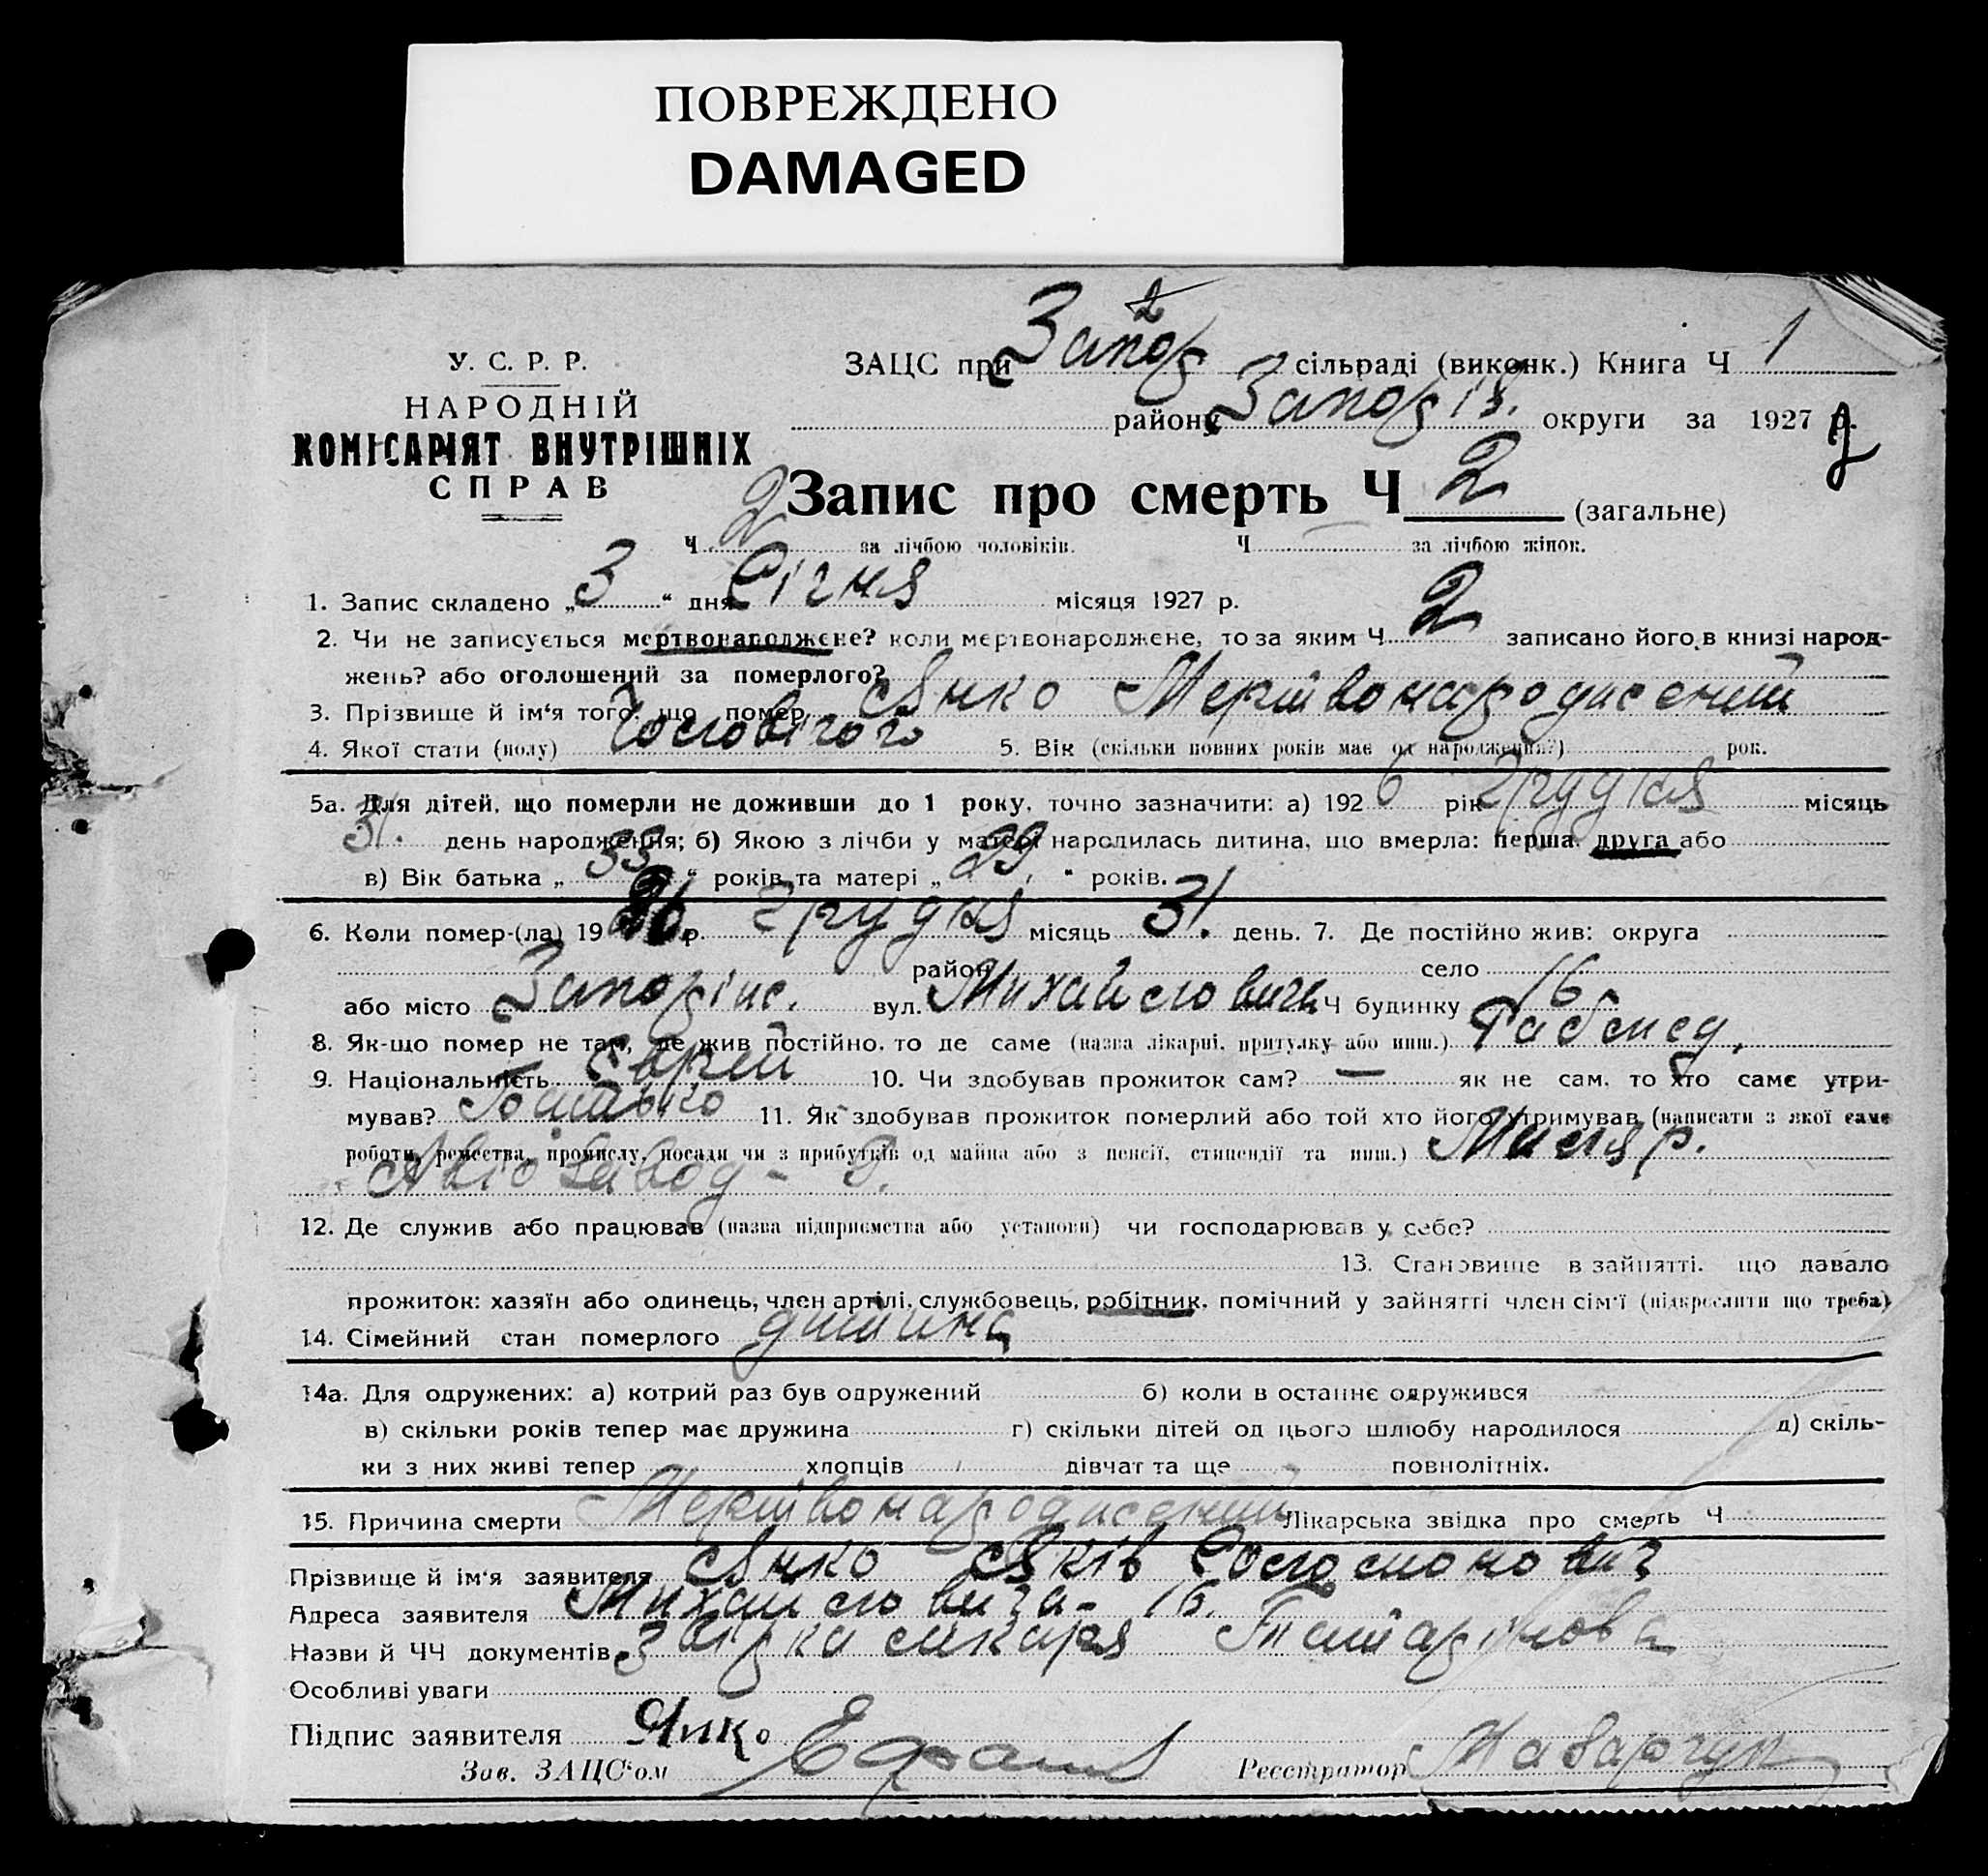 ПОВРЕЖДЕНО
DAMAGED
У. С. Р. Р.
НАРОДНІЙ
КОМІСАРІЯТ ВНУТРІШНІХ
СПРАВ
2
ЗАЦС при Запор сільраді (виконк.) Книга Ч 1
району Запоріз. округи за 1927 р.
Запис про смерть Ч 2 (загальне)
Ч 2 за лічбою чоловіків. Ч за лічбою жінок.
1. Запис складено „ 3 “ дня Січня місяця 1927 р.
2. Чи не записується мертвонароджене? коли мертвонароджене, то за яким Ч 2 записано його в книзі народ-
жень? або оголошений за померлого?
3. Прізвище й ім'я того, що помер Янко Мертвонароджений
4. Якої стати (полу) Чоловічої 5. Вік (скільки повних років має од народження?) рок.
5а. Для дітей, що померли не доживши до 1 року, точно зазначити: а) 1926 рік Грудня місяць
31. день народження; б) Якою з лічби у матері народилась дитина, що вмерла: перша, друга або
в) Вік батька „ 33 “ років та матері „ 29. “ років.
6. Коли помер-(ла) 1926 р. Грудня місяць 31. день. 7. Де постійно жив: округа
район село
або місто Запоріж. вул. Михайловича Ч будинку 16.
8. Як-що помер не там, де жив постійно, то де саме (назва лікарні, притулку або инш.)
9. Національність Єврей 10. Чи здобував прожиток сам? — як не сам, то хто саме утри-
мував? Батько 11. Як здобував прожиток померлий або той хто його утримував (написати з якої саме
роботи, ремества, промислу, посади чи з прибутків од майна або з пенсії, стипендії та инш.) Маляр.
Авіозавод -
12. Де служив або працював (назва підприємства або установи) чи господарював у себе?
13. Становище в зайнятті, що давало
прожиток: хазяїн або одинець, член артілі, службовець, робітник, помічний у зайнятті член сім'ї (підкреслити що треба)
14. Сімейний стан померлого дитина
14а. Для одружених: а) котрий раз був одружений б) коли в останнє одружився
в) скільки років тепер має дружина г) скільки дітей од цього шлюбу народилося д) скіль-
ки з них живі тепер хлопців дівчат та ще повнолітніх.
15. Причина смерти Мертвонароджений Лікарська звідка про смерть Ч
Прізвище й ім'я заявителя Янко Яків Соломонович
Адреса заявителя Михайловича - 16.
Назви й ЧЧ документів Звідка лікаря Татаринова
Особливі уваги
Підпис заявителя Янко
Зав. ЗАЦС'ом Реєстратор